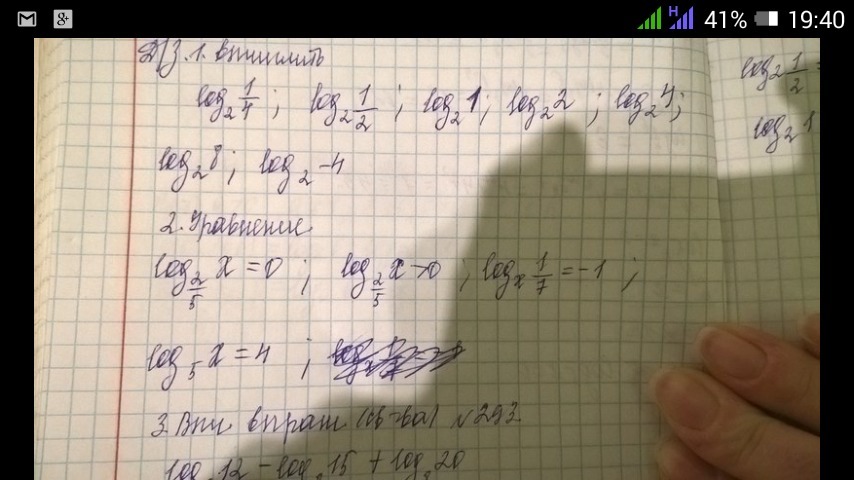 41% 19:40
Д/З. 1. Вычислить
log₂ 1/4 ; log₂ 1/2 ; log₂ 1 ; log₂ 2 ; log₂ 4 ;
log₂ 8 ; log₂ -4
2. Уравнение
log_{2/5} x = 0 ; log_{2/5} x > 0 ; logₓ 1/7 = -1 ;
log₅ x = 4 ;
3. №293
log 12 - log 15 + log 20
log₂ 1/2 =
log₂ 1